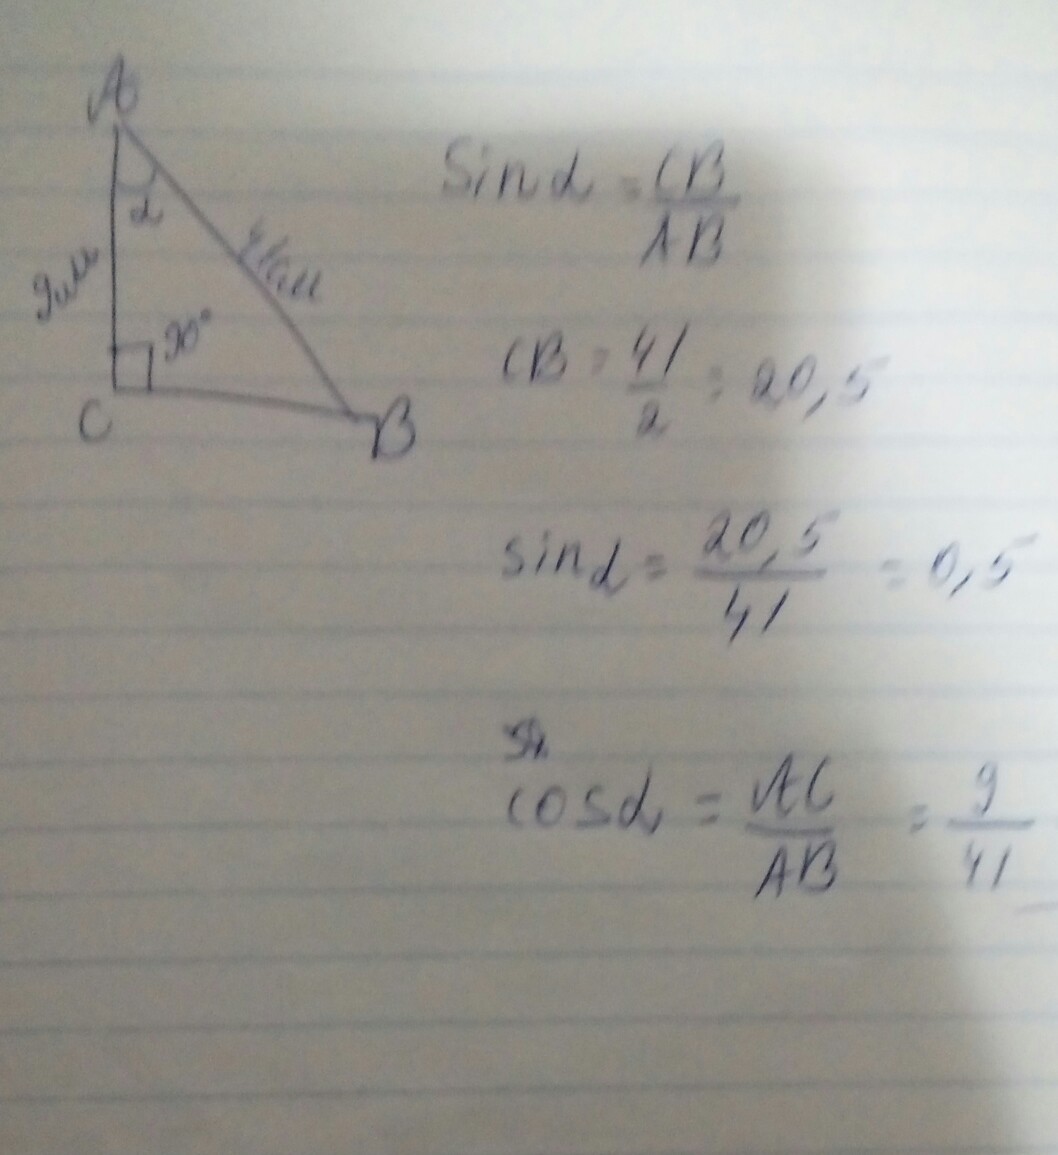 A
α
9см
41см
90°
C
B
Sin α = CB/AB
CB = 41/2 = 20,5
sin α = 20,5/41 = 0,5
cos α = AC/AB = 9/41